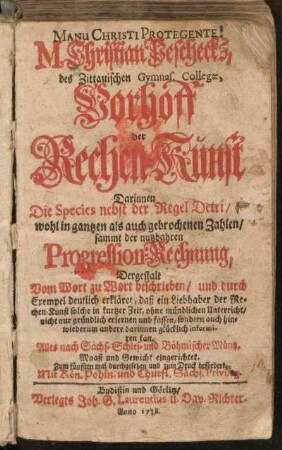 MANU CHRISTI PROTEGENTE!
M. Christian Peschecks,
des Zittauischen Gymnas. Collegæ,
Vorhoff
der
Rechen-Kunst
Darinnen
Die Species nebst der Regel Detri/
wohl in gantzen als auch gebrochenen Zahlen/
sammt der nutzbahren
Progression-Rechnung,
Dergestalt
Vom Wort zu Wort beschrieben/ und durch
Exempel deutlich erkläret, daß ein Liebhaber der Re-
chen-Kunst solche in kurtzer Zeit, ohne mündlichen Unterricht/
nicht nur gründlich erlernen und fassen, sondern auch hin-
wiederum andere darinnen glücklich informi-
ren kan.
Alles nach Sächs- Schles- und Böhmischer Müntz,
Maaß und Gewicht eingerichtet.
Zum fünfften mal durchgesehen und zum Druck befördert.
Mit Kön. Pohln. und Churfl. Sächs. Privileg.
Budißin und Görlitz/
Verlegts Joh. G. Laurentius u. Dav. Richter.
Anno